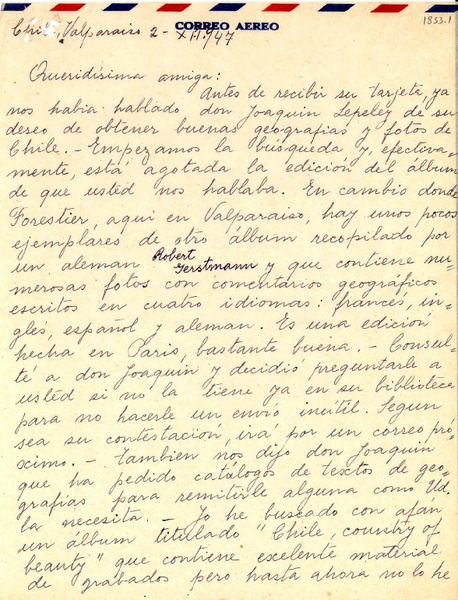 CORREO AEREO
1853.1
Chile, Valparaiso 2-XII.947
Queridísima amiga:
Antes de recibir su tarjeta, ya
nos habia hablado don Joaquin Lepeley de su
deseo de obtener buenas geografías y fotos de
Chile.- Empezamos la búsqueda y, efectiva-
mente, está agotada la edición del álbum
de que usted nos hablaba. En cambio donde
Forestier, aqui en Valparaiso, hay unos pocos
ejemplares de otro álbum recopilado por
un aleman Robert
Gerstmann y que contiene nu-
merosas fotos con comentarios geográficos
escritos en cuatro idiomas: francés, in-
glés, español y aleman. Es una edición
hecha en Paris, bastante buena.- Consul-
té a don Joaquin y decidió preguntarle a
usted si no la tiene ya en su biblioteca
para no hacerle un envio inútil. Segun
sea su contestación, irá por un correo pró-
ximo.- Tambien nos dijo don Joaquin
que ha pedido catálogos de textos de geo-
grafías para remitirle alguna como Ud.
la necesita.- Yo he buscado con afan
un álbum titulado "Chile, country of
beauty" que contiene excelente material
de grabados pero hasta ahora no lo he